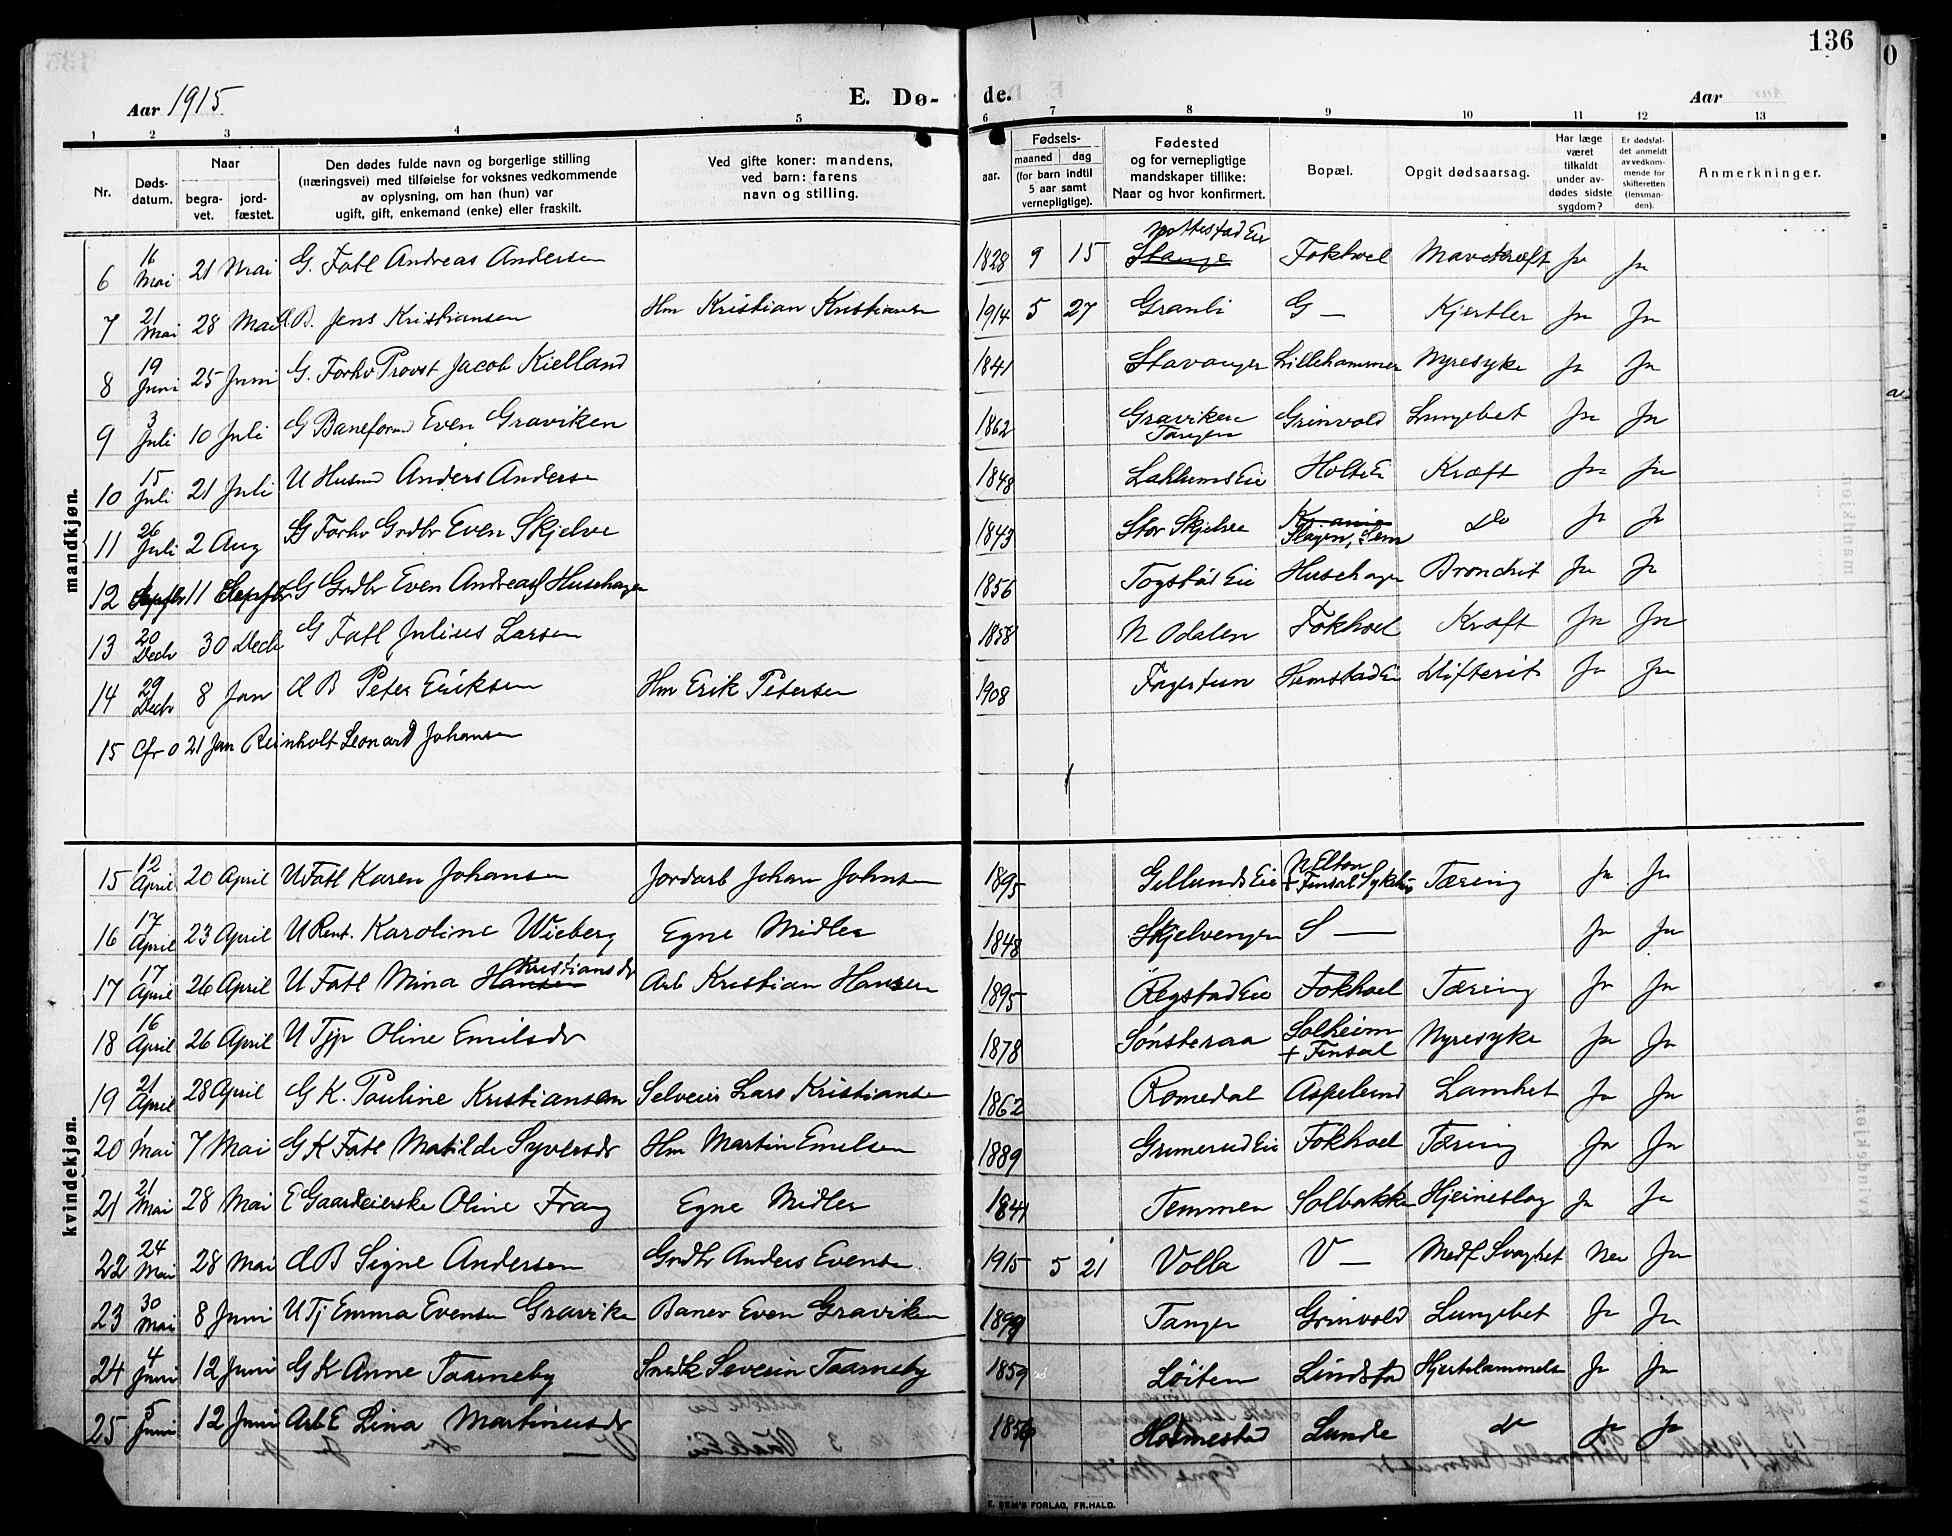 136
Aar 1915
E. Dø-
de.
Aar
1 2 3 4 5 6 7 8 9 10 11 12 13
Nr.
Døds-
datum.
Naar
begra-
vet.
jord-
fæstet.
Den dødes fulde navn og borgerlige stilling
(næringsvei) med tilføielse for voksnes vedkommende
av oplysning, om han (hun) var
ugift, gift, enkemand (enke) eller fraskilt.
Ved gifte koner: mandens,
ved barn: farens
navn og stilling.
Fødsels-
aar.
maaned
dag
(for barn indtil
5 aar samt
vernepligtige).
Fødested
og for vernepligtige
mandskaper tillike:
Naar og hvor konfirmert.
Bopæl.
Opgit dødsaarsag.
Har læge
været
tilkaldt
under av-
dødes sidste
sygdom?
Er dødsfal-
det anmeldt
av vedkom-
mende for
skifteretten
(lensman-
den).
Anmerkninger.
mandkjøn.
6 16 Mai 21 Mai G. Fatl Andreas Andersen 1828 9 15 Stange Nottestad Eie Fokhoel Mavekræft Ja Ja
7 21 Mai 28 Mai d.B. Jens Kristiansen Hm Kristian Kristiansen 1914 5 27 Granli G — Kjertler Ja Ja
8 19 Juni 25 Juni G. Forhv Provst Jacob Kielland 1841 Stavanger Lillehammer Nyresyke Ja Ja
9 3 Juli 10 Juli G Baneform Even Graviken 1862 Graviken Tangen Grinvold Lungebet Ja Ja
10 15 Juli 21 Juli U Husmd Anders Andersen 1848 Laklums Eie Holts Ei Kræft Ja Ja
11 26 Juli 2 Aug G Forhv Grdbr Even Skjelve 1843 Stor Skjelve Kr.ania Slagen, Sem do Ja Ja
12 1 Septbr 11 Septbr G Grdbr Even Andreas Husehagen 1856 Togstad Eie Husehagen Bronchit Ja Ja
13 20 Decbr 30 Decb G Fatl Julius Larsen 1858 N Odalen Fokhoel Kræft Ja Ja
14 29 Decbr 8 Jan d B Peter Eriksen Hm Erik Petersen 1908 Fagertun Hemstad Ei Difterit Ja Ja
15 Cfr 0 21 Jan Reinholt Leonard Johansen
kvindekjøn.
15 12 April 20 April U Fatl Karen Johansen Jordarb Johan Johnsen 1895 Gillunds Eie N Elton + Finsal Sykehus Tæring Ja Ja
16 17 April 23 April U Rent. Karoline Wieberg Egne Midler 1848 Skjelvengen S — Ja Ja
17 17 April 26 April U Fatl Mina Hansen Kristiansdr Arb Kristian Hansen 1895 Øegstad Eie Fokhoel Tæring Ja Ja
18 16 April 26 April U Tjp Oline Emilsdr 1878 Sønsteraa Solheim + Finsal Nyresyke Ja Ja
19 21 April 28 April G K. Pauline Kristiansen Selveier Lars Kristiansen 1862 Romedal Aspelund Lamhet Ja Ja
20 1 Mai 7 Mai G K Fatl Matilde Syversdr Hm Martin Emilsen 1889 Grimerud Eie Fokhoel Tæring Ja Ja
21 21 Mai 28 Mai E Gaardeierske Oline Frang Egne Midler 1841 Temmen Solbakken Hjerneslag Ja Ja
22 24 Mai 28 Mai d B Signe Andersen Grdbr Anders Evensen 1915 5 21 Volla V — Medf. Svaghet Nei Ja
23 30 Mai 8 Juni U Tj Emma Evensen Graviken Banev Even Graviken 1899 Tangen Grinvold Lungebet Ja Ja
24 4 Juni 12 Juni G K Anne Taarneby Snedk Severin Taarneby 1859 Løiten Lindstad Hjertelammelse Ja Ja
25 5 Juni 12 Juni Arb E Lina Martinusdr 1856 Holmestad Lunde do Ja Ja
E. SEM'S FORLAG, FR.HALD.